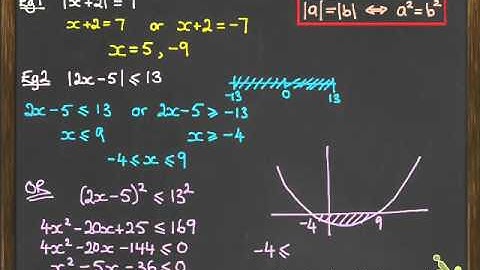 Eg1 |x+2|=7
x+2=7 or x+2=-7
x=5,-9
|a|=|b| ⇔ a²=b²
Eg2 |2x-5|≤13
-13 0 13
2x-5≤13 or 2x-5≥-13
x≤9 x≥-4
-4≤x≤9
OR (2x-5)²≤13²
4x²-20x+25≤169
4x²-20x-144≤0
x²-5x-36≤0
-4 9
-4≤